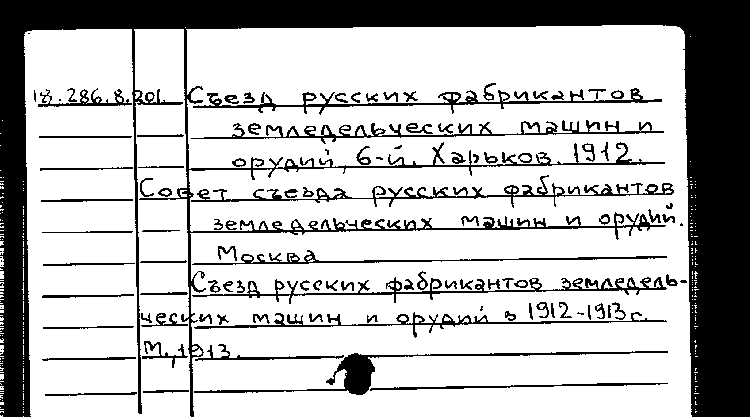 18.286.8.201. Съезд русских фабрикантов
земледельческих машин и
орудий, 6-й. Харьков. 1912.
Совет съезда русских фабрикантов
земледельческих машин и орудий.
Москва
Съезд русских фабрикантов земледель-
ческих машин и орудий в 1912-1913 г.
М., 1913.